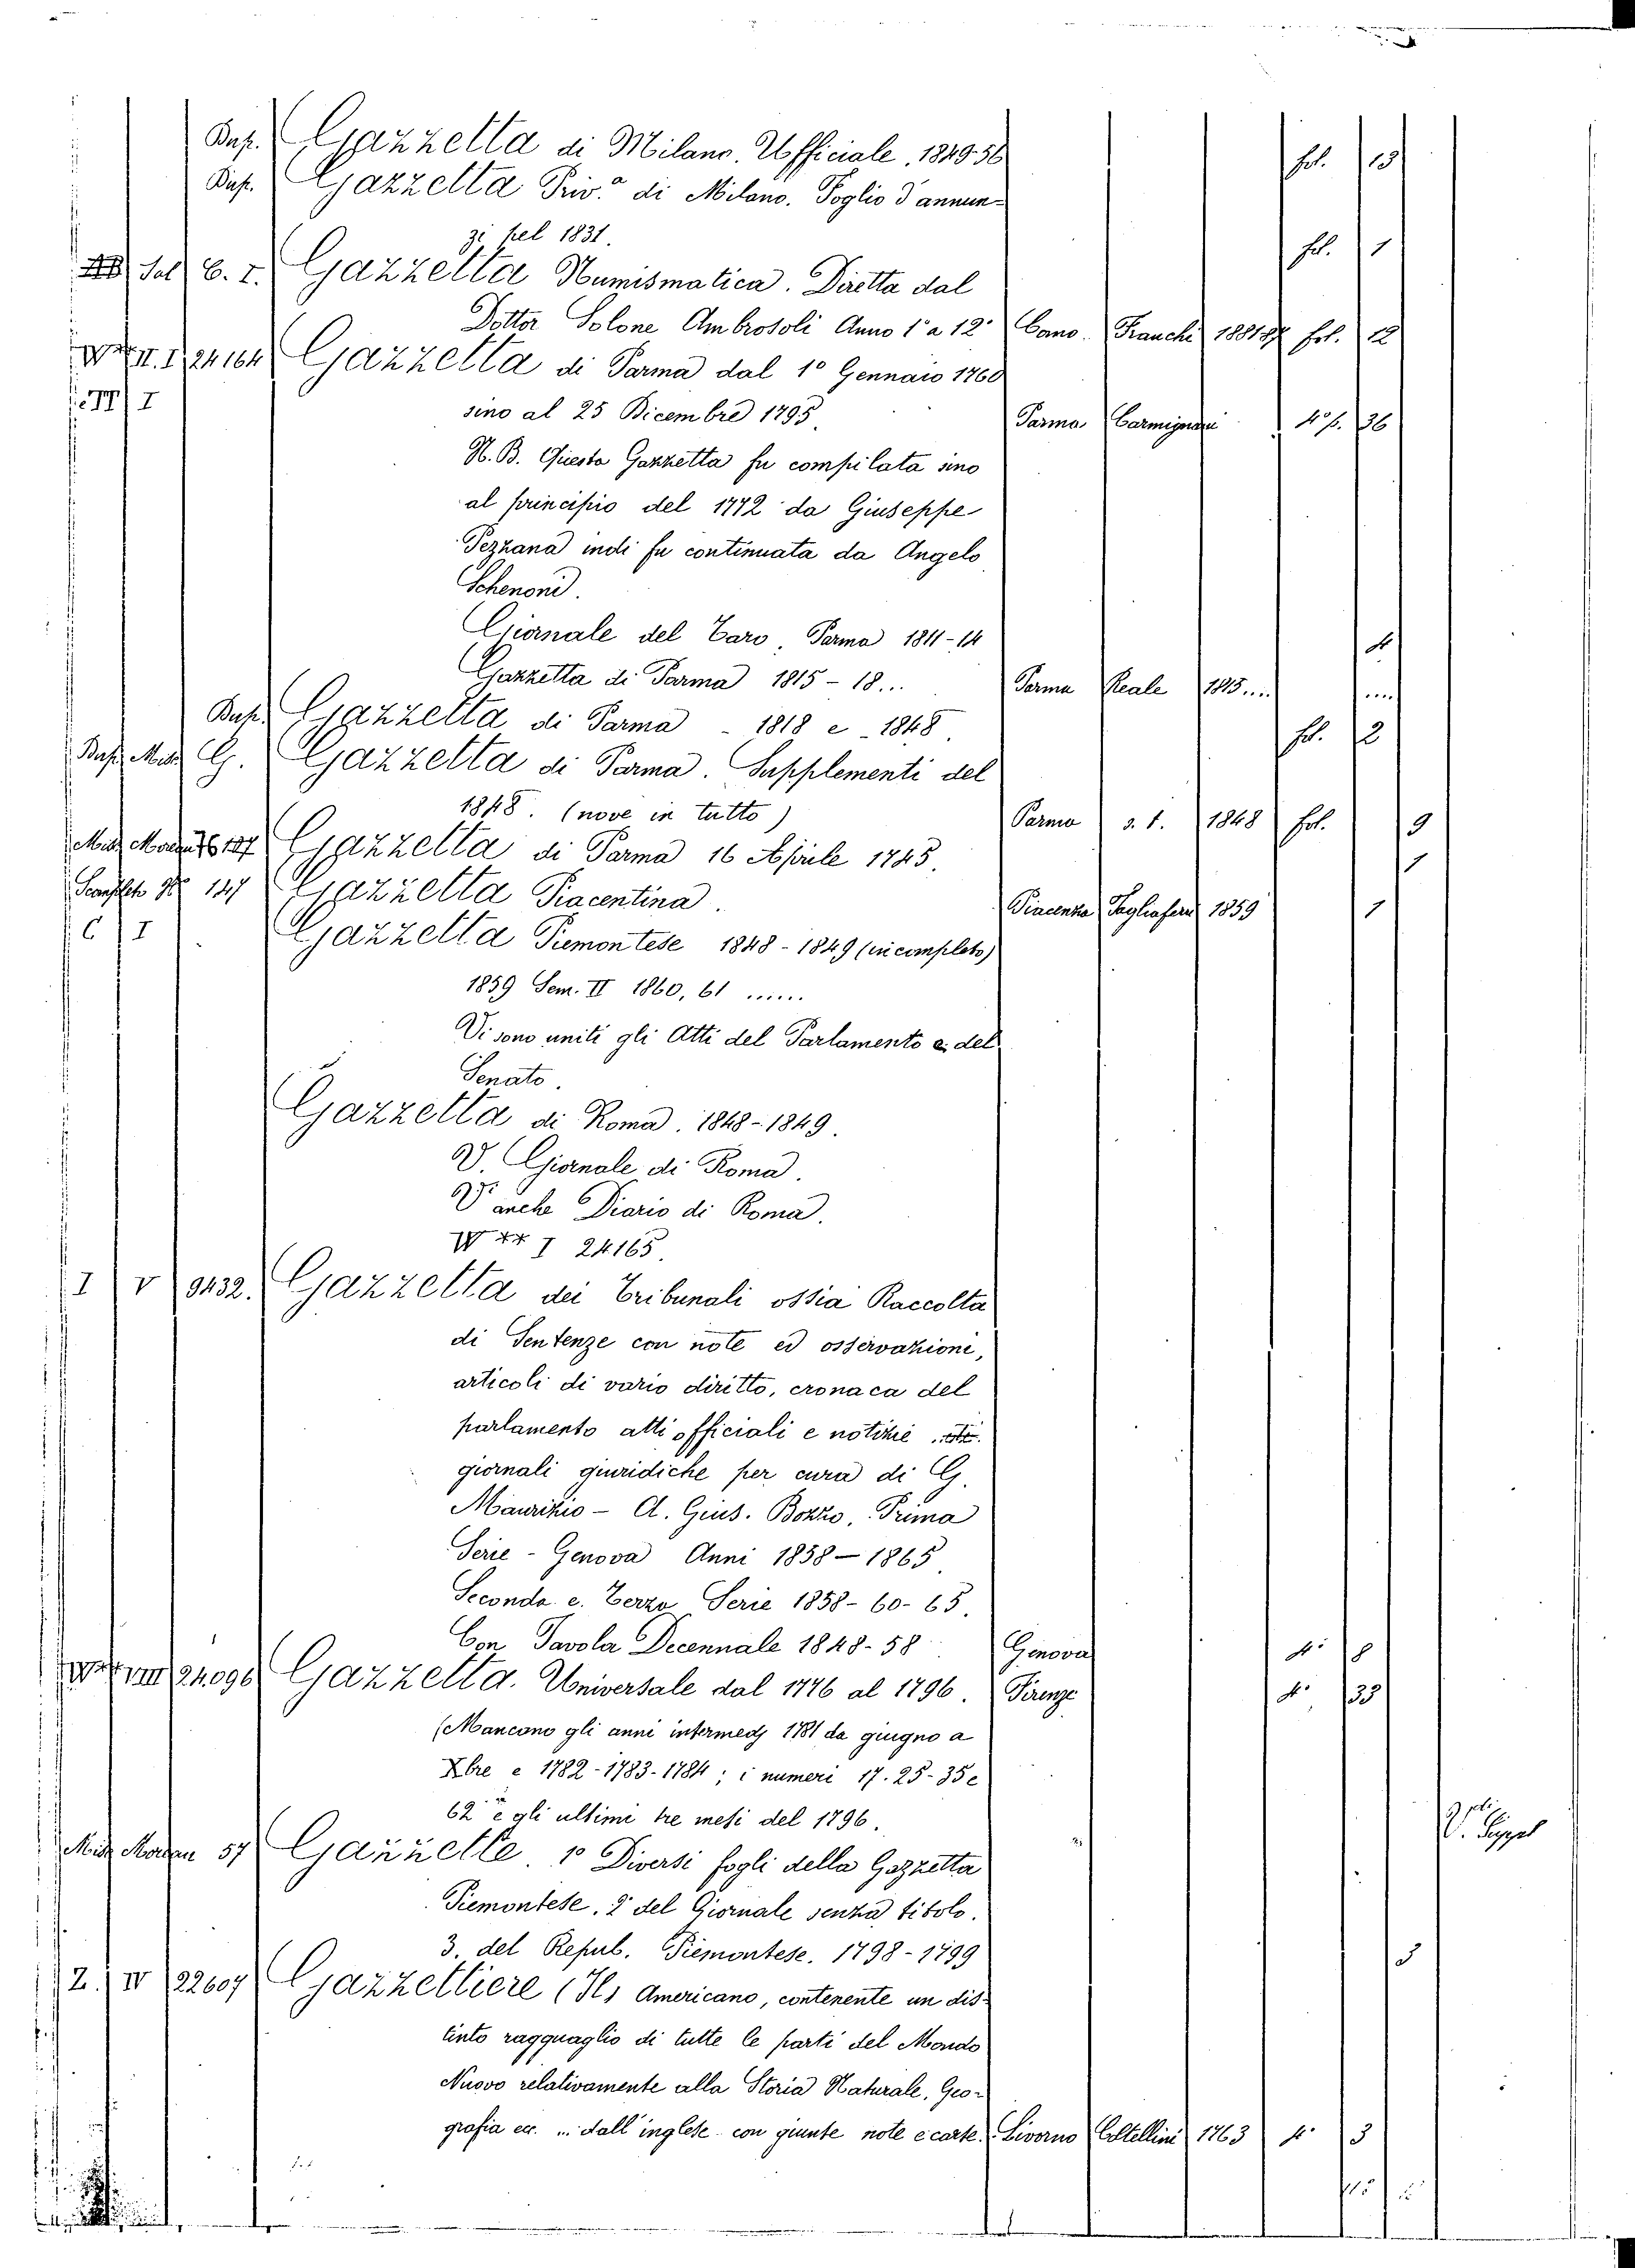 Bass. Gazzetta di Milano. Ufficiale. 1849-56 fol. 13
Bass. Gazzetta Priv.a di Milano. Foglio d'annun-
zi pel 1831. fol. 1
Sal. C. I. Gazzetta Numismatica. Diretta dal
Dottor Solone Ambrosoli Anno 1° a 12° Como. Franchi 1881 87 fol. 12
II. I 24164 Gazzetta di Parma dal 1° Gennaio 1760
I sino al 25 Dicembre 1795. Parma Carmignani 4° p. 36
N. B. Questa Gazzetta fu compilata sino
al principio del 1772 da Giuseppe
Pezzana indi fu continuata da Angelo
Schenoni.
Giornale del Taro, Parma 1811-14 4
Gazzetta di Parma 1815-18... Parma Reale 1815.... ....
Bass. Gazzetta di Parma - 1818 e - 1848. fol. 2
Bass. Misc. G. Gazzetta di Parma. Supplementi del
1848. (nove in tutto) Parma s. t. 1848 fol. 9
Misc. Gazzetta di Parma 16 Aprile 1745. 1
147 Gazzetta Piacentina. Piacenza Tagliaferri 1859 1
C I Gazzetta Piemontese 1848-1849 (incompleto)
1859 Sem. II 1860, 61 ......
Vi sono uniti gli Atti del Parlamento e del
Senato.
Gazzetta di Roma. 1848-1849.
V. Giornale di Roma.
V. anche Diario di Roma.
W ** I 24165.
I V 9432. Gazzetta dei Tribunali ossia Raccolta
di Sentenze con note ed osservazioni,
articoli di vario diritto, cronaca del
parlamento atti officiali e notizie
giornali giuridiche per cura di G.
Maurizio - A. Gius. Bozzo. Prima
Serie - Genova Anni 1858-1865.
Seconda e. Terza Serie 1858-60-65.
Con Tavola Decennale 1848-58 Genova 4° 8
VIII 24096 Gazzetta. Universale dal 1776 al 1796. Firenze 4° 33
(Mancano gli anni intermedj 1781 da giugno a
Xbre e 1782-1783-1784; i numeri 17.25-35 e
62 e gli ultimi tre mesi del 1796.
Misc. 57 Gazzette 1° Diversi fogli della Gazzetta
Piemontese. 2° del Giornale senza titolo.
3. del Repub. Piemontese. 1798-1799 3
Z. IV 22607 Gazzettiere (Il) Americano, contenente un dis-
tinto ragguaglio di tutte le parti del Mondo
Nuovo relativamente alla Storia Naturale, Geo-
grafia ec. ... dall'inglese con giunte note e carte. Livorno Coltellini 1763 4° 3